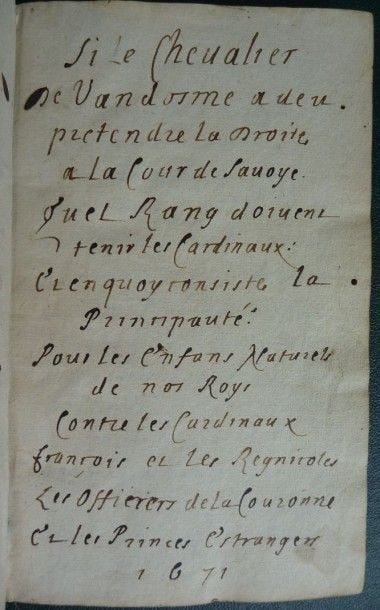 Si Le Chevalier
De Vandosme a deu
pretendre la Droite
a la Cour de Savoye.
Quel Rang doivent
tenir les Cardinaux:
Et enquoy consiste la
Principauté.
Pour les Enfans Naturels
de nos Roys
Contre les Cardinaux
françois et Les Regnicoles
Les Officiers de la Couronne
Et les Princes Estrangers
1671